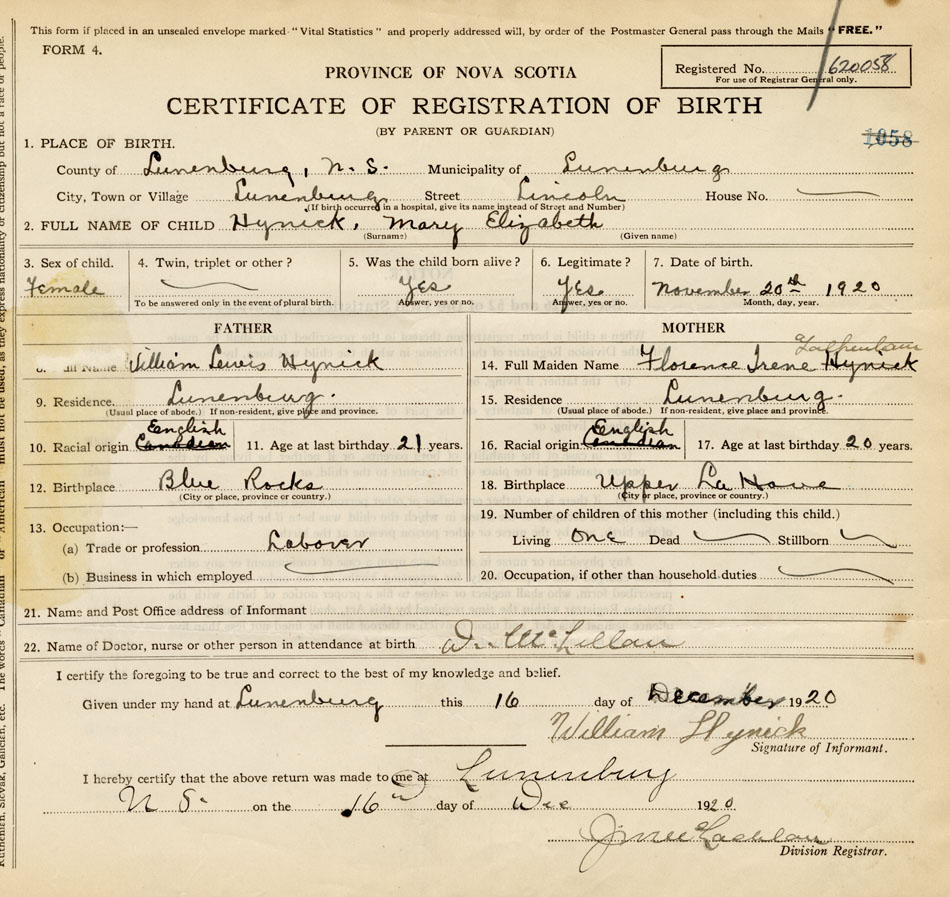 This form if placed in an unsealed envelope marked "Vital Statistics" and properly addressed will, by order of the Postmaster General pass through the Mails "FREE."
FORM 4.
PROVINCE OF NOVA SCOTIA
Registered No. 620058
For use of Registrar General only.
CERTIFICATE OF REGISTRATION OF BIRTH
(BY PARENT OR GUARDIAN)
1058
1. PLACE OF BIRTH.
County of Lunenburg, N. S. Municipality of Lunenburg
City, Town or Village Lunenburg Street Lincoln House No.
(If birth occurred in a hospital, give its name instead of Street and Number)
2. FULL NAME OF CHILD Hynick, Mary Elizabeth
(Surname) (Given name)
3. Sex of child. 4. Twin, triplet or other? 5. Was the child born alive? 6. Legitimate? 7. Date of birth.
Female Yes Yes November 20th 1920
To be answered only in the event of plural birth. Answer, yes or no. Answer, yes or no. Month, day, year.
FATHER
Name William Lewis Hynick
9. Residence. Lunenburg.
(Usual place of abode.) If non-resident, give place and province.
English
10. Racial origin Canadian 11. Age at last birthday 21 years.
12. Birthplace Blue Rocks
(City or place, province or country.)
13. Occupation:—
(a) Trade or profession Laborer
(b) Business in which employed
MOTHER
14. Full Maiden Name Florence Irene Hynick
15. Residence. Lunenburg.
(Usual place of abode.) If non-resident, give place and province.
English
16. Racial origin Canadian 17. Age at last birthday 20 years.
18. Birthplace Upper La Have
(City or place, province or country.)
19. Number of children of this mother (including this child.)
Living One Dead Stillborn
20. Occupation, if other than household duties
21. Name and Post Office address of Informant
22. Name of Doctor, nurse or other person in attendance at birth Dr. McLellan
I certify the foregoing to be true and correct to the best of my knowledge and belief.
Given under my hand at Lunenburg this 16 day of December 1920
William Hynick
Signature of Informant.
I hereby certify that the above return was made to me at Lunenburg
N S. on the 16th day of Dec 1920
Division Registrar.